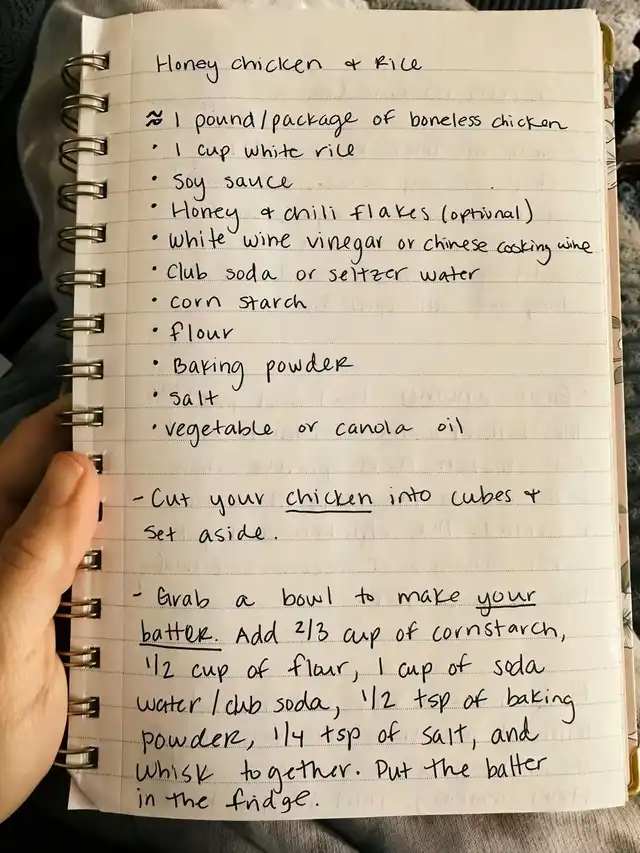 Honey chicken + Rice
≈ 1 pound/package of boneless chicken
• 1 cup white rice
• Soy sauce
• Honey + chili flakes (optional)
• white wine vinegar or chinese cooking wine
• Club soda or seltzer water
• corn starch
• flour
• Baking powder
• Salt
• vegetable or canola oil
- Cut your chicken into cubes +
set aside.
- Grab a bowl to make your
batter. Add 2/3 cup of cornstarch,
1/2 cup of flour, 1 cup of soda
water/club soda, 1/2 tsp of baking
powder, 1/4 tsp of salt, and
whisk together. Put the batter
in the fridge.